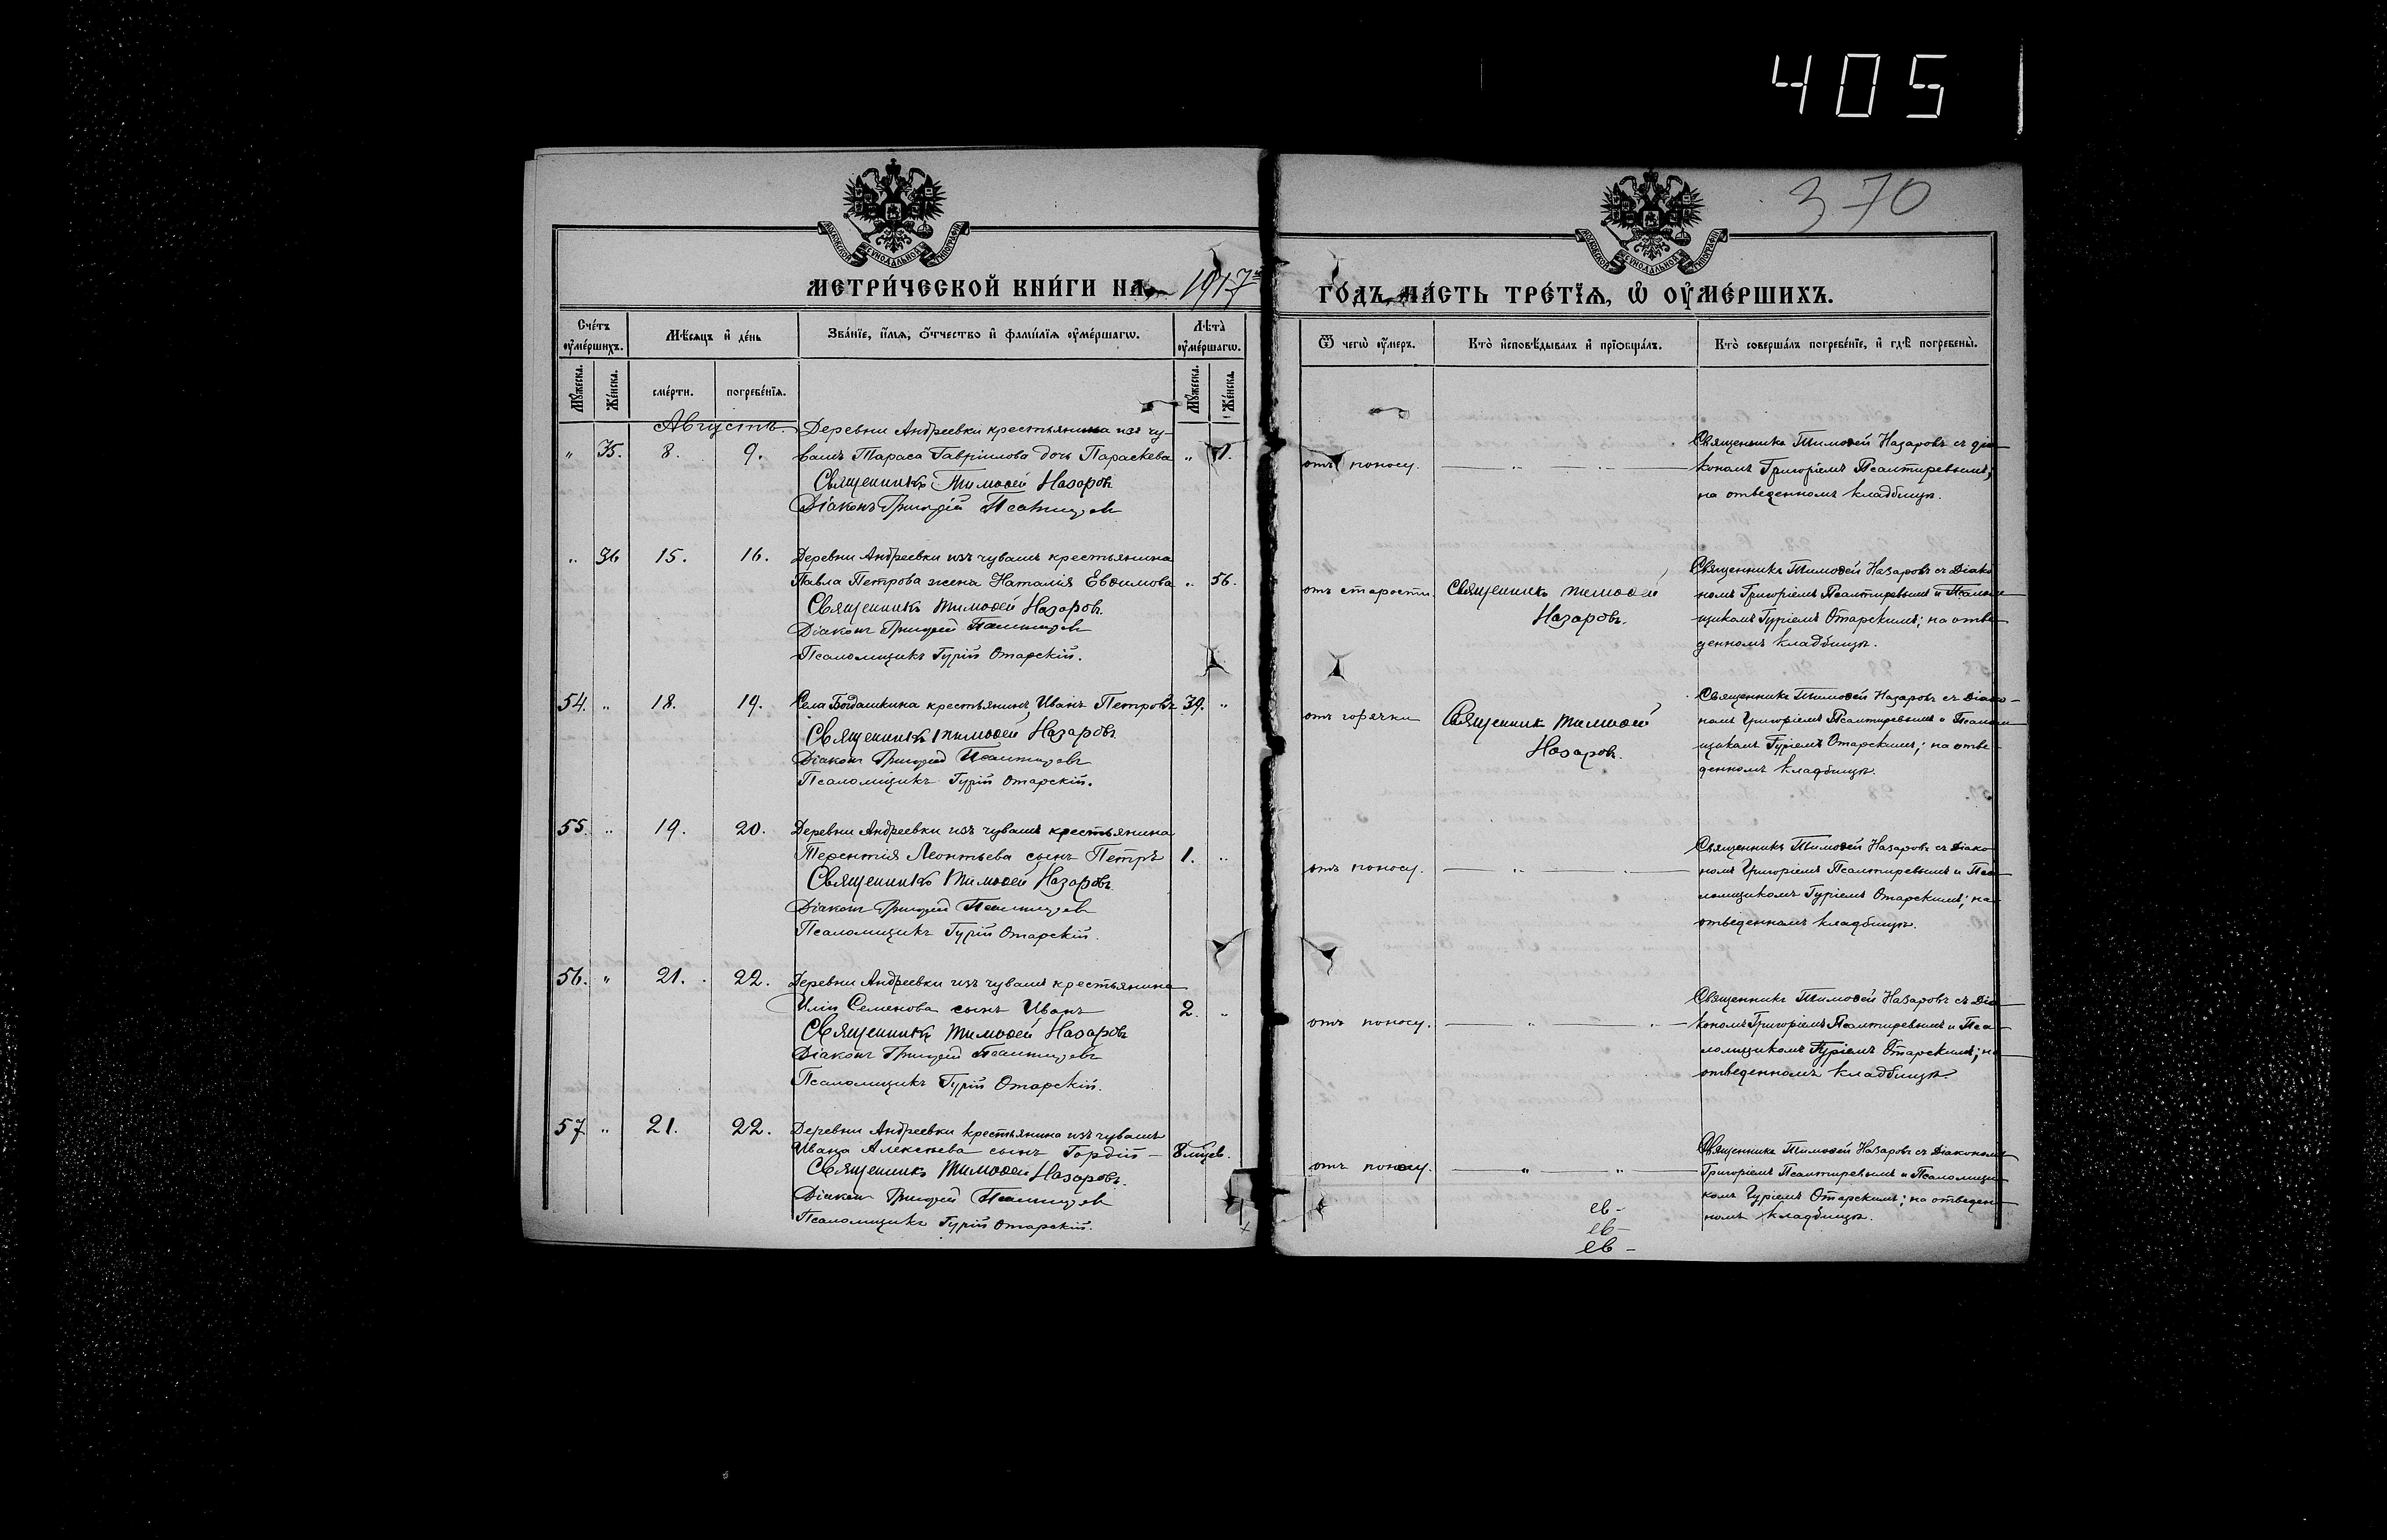 405
370
МОСКОВСКОЙ СѴНОДАЛЬНОЙ ТИПОГРАФІИ
МОСКОВСКОЙ СѴНОДАЛЬНОЙ ТИПОГРАФІИ
МЕТРИ́ЧЕСКОЙ КНИ́ГИ НА 1917й
ГО́ДЪ, ЧА́СТЬ ТРЕ́ТЇѦ, Ѡ҆ ОУ҆МЕ́РШИХЪ.
Сче́тъ оу҆ме́ршихъ.
Мѣ́сѧцъ и҆ де́нь
Зва́нїе, и҆́мѧ, ѻ҆́тчество и҆ фами́лїѧ оу҆ме́ршагѡ.
Лѣ́та̀ оу҆ме́ршагѡ.
Ѿ чегѡ̀ оу҆́меръ.
Кто̀ и҆сповѣ́дывалъ и҆ прїѡбща́лъ.
Кто̀ соверша́лъ погребе́нїе, и҆ гдѣ̀ погребены̀.
Мꙋ́жеска.
Же́нска.
сме́рти.
погребе́нїѧ.
Мꙋ́жеска.
Же́нска.
Августъ.
" 35. 8. 9.
Деревни Андреевки крестьянина изъ чу-
вашъ Тараса Гаврілова дочь Параскева " 1.
Священникъ Тимоѳей Назаровъ
Діаконъ Григорій Псалтиревъ
отъ поносу.
Священникъ Тимоѳей Назаровъ съ діа-
кономъ Григоріемъ Псалтиревымъ;
на отведенномъ кладбищѣ.
" 36 15. 16.
Деревни Андреевки изъ чувашъ крестьянина
Павла Петрова жена Наталія Евѳимова " 56.
Священникъ Тимоѳей Назаровъ.
Діаконъ Григорій Псалтиревъ
Псаломщикъ Гурій Отарскій.
отъ старости.
Священникъ Тимоѳей
Назаровъ.
Священникъ Тимоѳей Назаровъ съ Діако-
номъ Григоріемъ Псалтиревымъ и Псалом-
щикомъ Гуріемъ Отарскимъ; на отве-
денномъ кладбищѣ.
54. " 18. 19.
Села Богдашкина крестьянинъ, Иванъ Петровъ 39. "
Священникъ Тимоѳей Назаровъ
Діаконъ Григорій Псалтиревъ
Псаломщикъ Гурій Отарскій.
отъ горячки
Священник Тимоѳей
Назаровъ.
Священникъ Тимоѳей Назаровъ съ Діако-
номъ Григоріемъ Псалтиревымъ и Псалом-
щикомъ Гуріемъ Отарскимъ; на отве-
денномъ кладбищѣ.
55. " 19. 20.
Деревни Андреевки изъ чувашъ крестьянина
Терентія Леонтьева сынъ Петръ 1. "
Священникъ Тимоѳей Назаровъ
Діаконъ Григорій Псалтиревъ
Псаломщикъ Гурій Отарскій.
отъ поносу.
Священникъ Тимоѳей Назаровъ съ Діако-
номъ Григоріемъ Псалтиревымъ и Пса-
ломщикомъ Гуріемъ Отарскимъ; на
отведенномъ кладбищѣ.
56. " 21. 22.
Деревни Андреевки изъ чувашъ крестьянина
Иліи Семенова сынъ Иванъ 2. "
Священникъ Тимоѳей Назаровъ
Діаконъ Григорій Псалтиревъ
Псаломщикъ Гурій Отарскій.
отъ поносу.
Священникъ Тимоѳей Назаровъ съ Діа-
кономъ Григоріемъ Псалтиревымъ и Пса-
ломщикомъ Гуріемъ Отарскимъ; на
отведенномъ кладбищѣ.
57 " 21. 22.
Деревни Андреевки крестьянина изъ чувашъ
Ивана Алексѣева сынъ Гордій - 8 мѣсяцев.
Священникъ Тимоѳей Назаровъ.
Діаконъ Григорій Псалтиревъ
Псаломщикъ Гурій Отарскій.
отъ поносу.
Священникъ Тимоѳей Назаровъ съ Діакономъ
Григоріемъ Псалтиревымъ и Псаломщи-
комъ Гуріемъ Отарскимъ; на отведен-
номъ кладбищѣ.
ев-
ев-
ев-